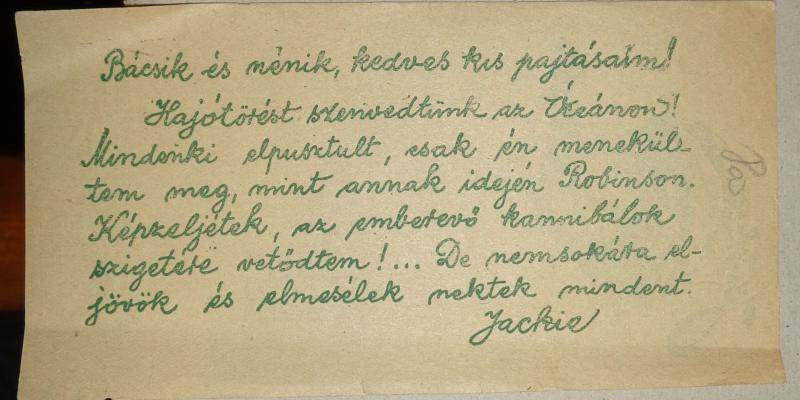 Bácsik és nénik, kedves kis pajtásaim!
Hajótörést szenvedtünk az Óceánon!
Mindenki elpusztult, csak én menekül-
tem meg, mint annak idején Robinson.
Képzeljétek, az emberevő kannibálok
szigetére vetődtem!... De nemsokára el-
jövök és elmesélek nektek mindent.
Jackie